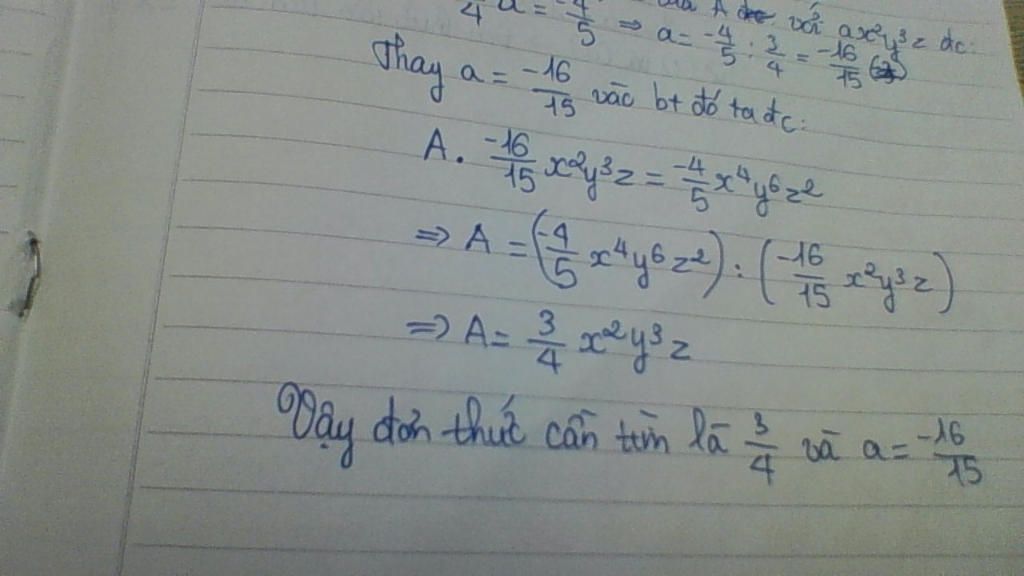 /4 a = -4/5 ⇒ a = -4/5 : 3/4 = -16/15 với ax²y³z đc:
Thay a = -16/15 vào bt đó ta đc:
A. -16/15 x²y³z = -4/5 x⁴y⁶z²
⇒ A = (-4/5 x⁴y⁶z²) : (-16/15 x²y³z)
⇒ A = 3/4 x²y³z
Vậy đơn thức cần tìm là 3/4 và a = -16/15